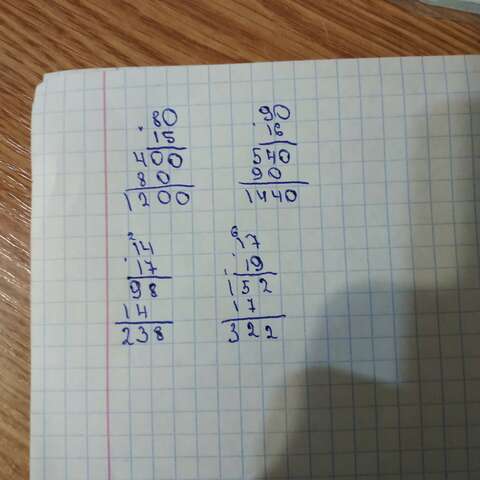 80
15
400
80
1200
90
16
540
90
1440
2
14
17
98
14
238
6
17
19
152
17
322